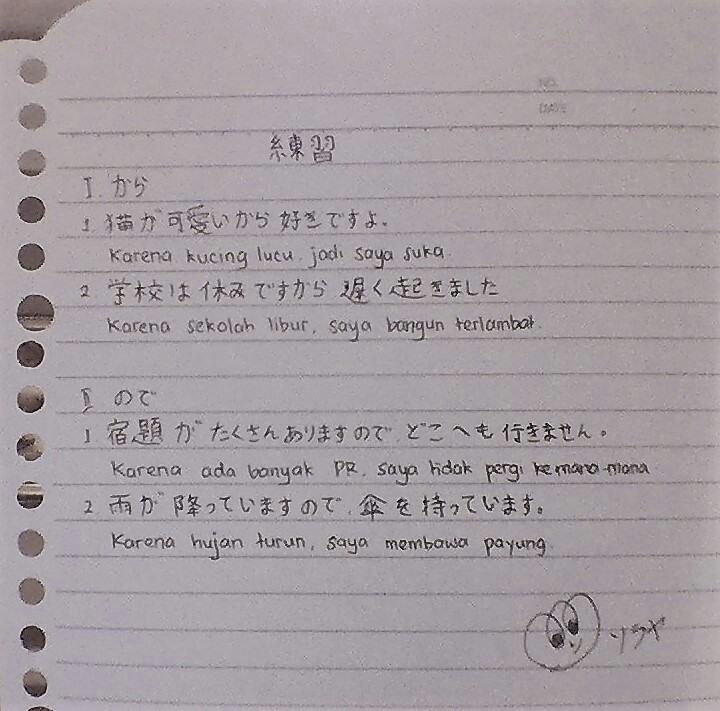 NO.
DATE
練習
I. から
1. 猫が可愛いから好きですよ。
Karena kucing lucu, jadi saya suka.
2. 学校は休みですから遅く起きました
Karena sekolah libur, saya bangun terlambat.
II. ので
1. 宿題がたくさんありますので、どこへも行きません。
Karena ada banyak PR, saya tidak pergi kemana-mana
2. 雨が降っていますので、傘を持っています。
Karena hujan turun, saya membawa payung.